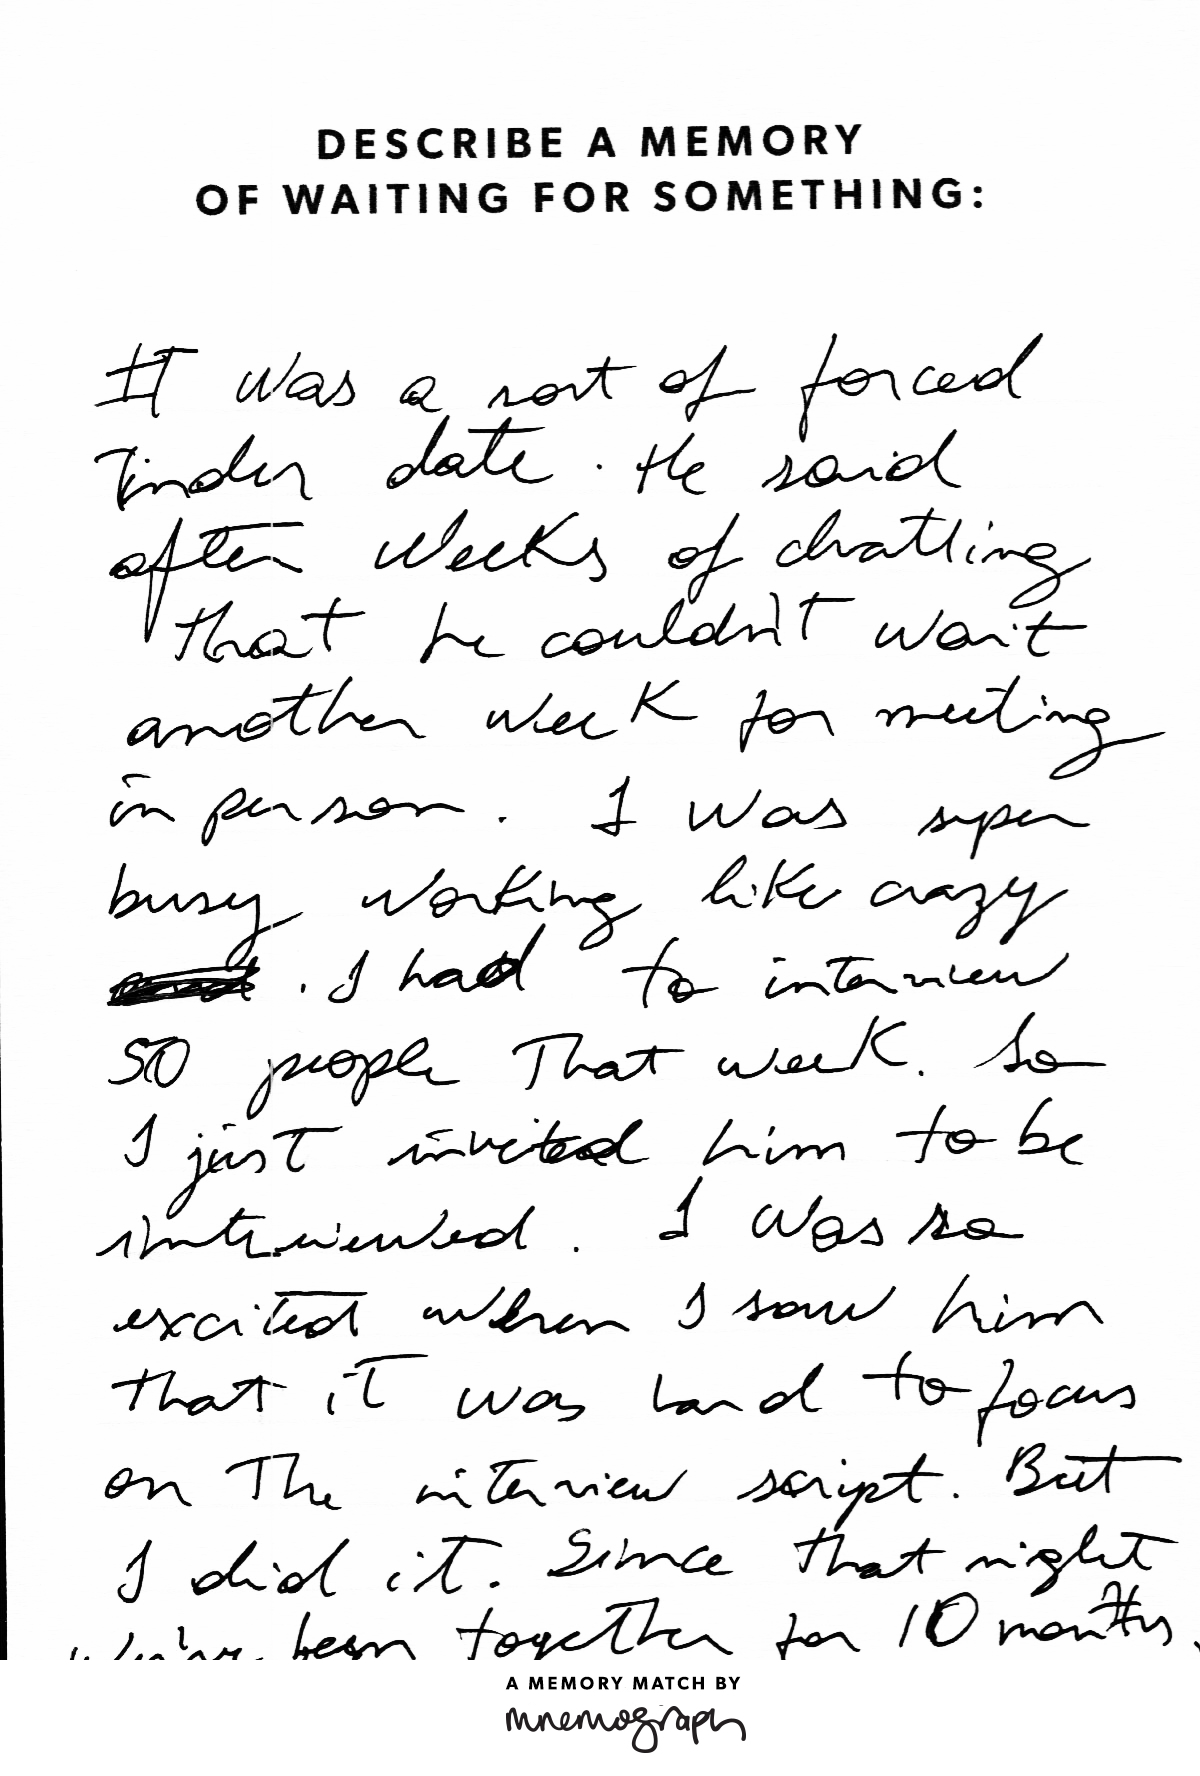 DESCRIBE A MEMORY
OF WAITING FOR SOMETHING:
It was a sort of forced
Tinder date. He said
after weeks of chatting
that he couldn't wait
another week for meeting
in person. I was super
busy working like crazy
. I had to interview
50 people that week. So
I just invited him to be
interviewed. I was so
excited when I saw him
that it was hard to focus
on the interview script. But
I did it. Since that night
We've been together for 10 months.
A MEMORY MATCH BY
mnemograph